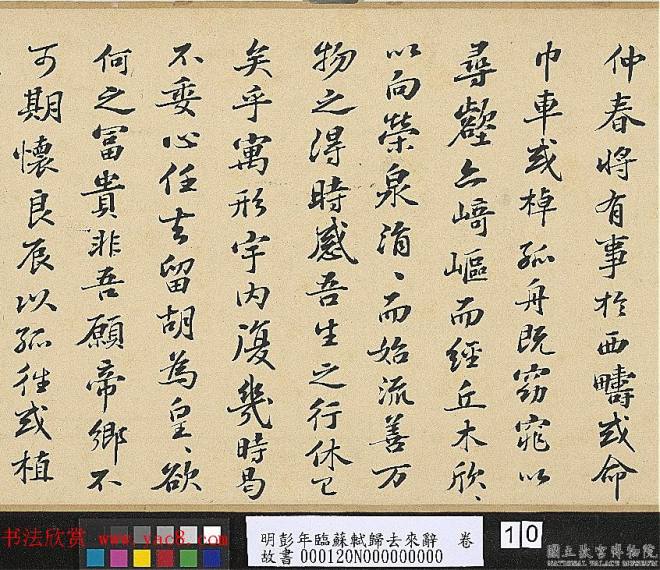 仲春将有事於西疇或命
巾車或棹孤舟既窈窕以
尋壑亦崎嶇而經丘木欣〻
以向榮泉涓〻而始流善万
物之得時感吾生之行休已
矣乎寓形宇内復幾時曷
不委心任去留胡為皇〻欲
何之富貴非吾願帝鄉不
可期懷良辰以孤往或植
书法欣赏
www.yac8.com
明彭年臨蘇軾歸去來辭 卷
故書 000120N000000000
10
國立故宮博物院
NATIONAL PALACE MUSEUM